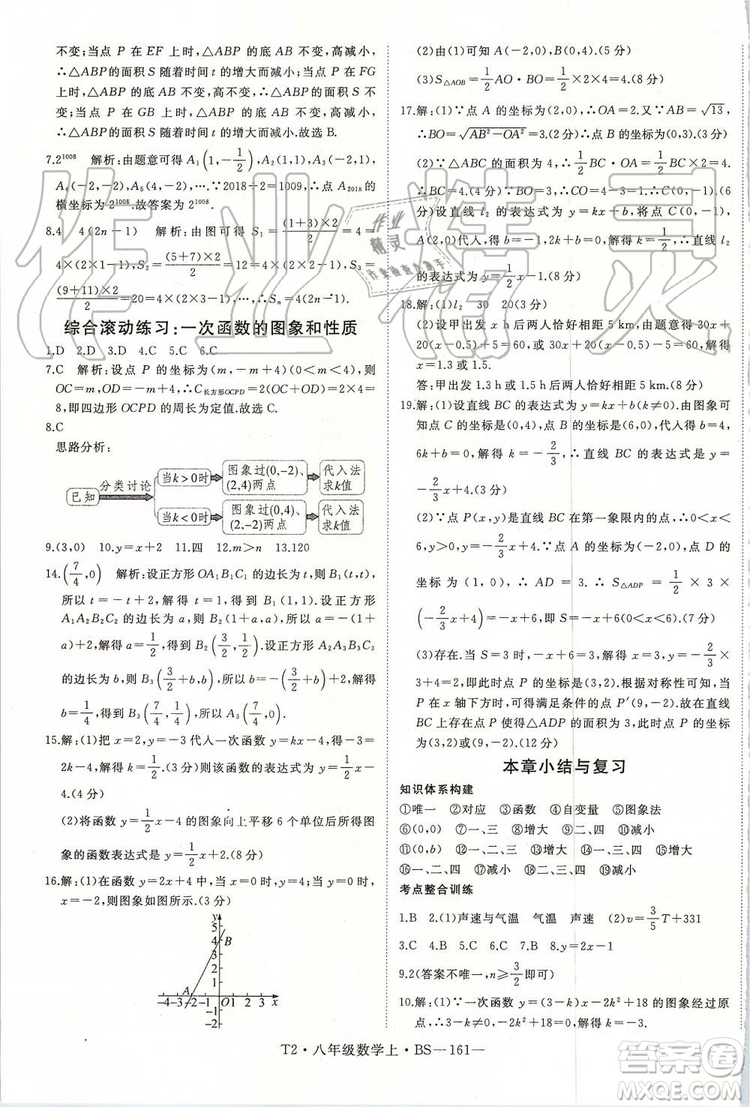 不变;当点 P 在 EF 上时,△ABP 的底 AB 不变,高减小,
∴△ABP的面积 S 随着时间 t 的增大而减小;当点 P 在 FG
上时,△ABP 的底 AB 不变,高不变,∴△ABP 的面积 S 不
变;当点 P 在 GB 上时,△ABP 的底 AB 不变,高减小,
∴△ABP 的面积 S 随着时间 t 的增大而减小.故选 B.
7.2^1008 解析:由题意可得 A₁(1,-1/2),
A₄(-2,-2),A₆(4,-2),…,∵2018÷2=1009,∴点 A₂₀₁₈ 的
横坐标为 2^1008.故答案为 2^1008.
8.4 4(2n-1) 解析:由图可得 S₁=(1+3)×2/2=
4×(2×1-1),S₂=(5+7)×2/2=4×(2×2-1),S₃=
(9+11)×2/2=20=4×(2×3-1),…,∴Sₙ=4(2n-1).
综合滚动练习:一次函数的图象和性质
1.D 2.D 3.D 4.C 5.C 6.C
7.C 解析:设点 P 的坐标为(m,-m+4)(0<m<4),则
OC=m,PC=-m+4,∴C长方形OCPD=2(OC+PC)=2×4=
8,即四边形 OCPD 的周长为定值.故选 C.
8.C
思路分析:
已知
分类讨论
当k>0时
图象过(0,-2)、(2,4)两点
代入法求k值
当k<0时
图象过(0,4)、(2,-2)两点
代入法求k值
9.(3,0) 10.y=x+2 11.四 12.m>n 13.120
14.(7/4,0) 解析:设正方形 OA₁B₁C₁ 的边长为 t,则 B₁(t,t),
所以 t=-t+2,解得 t=1,得到 B₁(1,1).设正方形
A₁A₂B₂C₂ 的边长为 a,则 B₂(1+a,a),所以 a=-(1+
a)+2,解得 a=1/2,得到 B₂(3/2,1/2).设正方形 A₂A₃B₃C₃
的边长为 b,则 B₃(3/2+b,b),所以 b=-(3/2+b)+2,解得
b=1/4,得到 B₃(7/4,1/4),所以 A₃(7/4,0).
15.解:(1)把 x=2,y=-3 代入一次函数 y=kx-4,得-3=
2k-4.解得 k=1/2,则该一次函数的表达式为 y=1/2x-
4.(4分)
(2)将函数 y=1/2x-4 的图象向上平移 6 个单位后所得图
象的函数表达式是 y=1/2x+2.(8分)
16.解:(1)在函数 y=2x+4 中,令 x=0,得 y=4;令 y=0,得
x=-2,则图象如图所示.(3分)
y
5
4
3
2
1
B
A
-4-3-2-1 O 1 2 3 4 x
-1
-2
(2)由(1)知 A(-2,0),B(0,4).(5分)
(3)S△AOB=1/2AO·BO=1/2×2×4=4.(8分)
17.解:(1)∵点 A 的坐标为(2,0),∴OA=2.又∵AB=√13,
∴BO=√(AB²-OA²)=3,∴点 B 的坐标为(0,3).(3分)
(2)∵△ABC 的面积为 4,∴1/2BC·OA=4,即1/2BC×2=
4,∴BC=4.∵BO=3,∴CO=4-3=1.∴C(0,-1).(5
分)设直线 l₂ 的表达式为 y=kx+b,将 A(2,0),
C(0,-1)代入,得 b=-1,2k+b=0,∴k=1/2.∴直线 l₂
的表达式为 y=1/2x-1.(8分)
18.解:(1)l₂ 30 20(4分)
(2)设甲出发 x h 后两人恰好相距 5 km,由题意得 30x+
20(x-0.5)+5=60 或 30x+20(x-0.5)-5=60,解得
x=1.3 或 1.5.
答:甲出发 1.3 h 或 1.5 h 后两人恰好相距 5 km.(8分)
19.解:(1)设直线 BC 的表达式为 y=kx+b(k≠0).由图象可
知点 C 的坐标为(0,4),点 B 的坐标为(6,0),代入得 b=4,
6k+b=0,∴k=-2/3,∴直线 BC 的表达式为 y=
-2/3x+4.(3分)
(2)∵点 P(x,y)是直线 BC 在第一象限内的点,∴0<x<
6,y>0.∵y=-2/3x+4,点 A 的坐标为(3,0),点 D 的
坐标为(0,0),∴AD=3.∴S△ADP=1/2×3×
(-2/3x+4)=-x+6,即 S=-x+6(0<x<6).(7分)
(3)存在.当 S=3 时,-x+6=3,解得 x=3,y=-2/3×3+4=
2,即此时点 P 的坐标是(3,2).根据对称性可知,当点
P 在 x 轴下方时,可得满足条件的点 P′(9,-2).故当
△BCD≌△ABD时,△ADP 的面积为 3,此时点 P 的坐标
为(3,2)或(9,-2).(12分)
本章小结与复习
知识体系构建
①唯一 ②对应 ③函数 ④自变量 ⑤图象法
⑥(0,0) ⑦一、三 ⑧增大 ⑨二、四 ⑩减小
⑪(0,b) ⑫一、三 ⑬增大 ⑭一、二、三 ⑮增大
⑯一、二、四 ⑰减小 ⑱二、三、四 ⑲减小
考点整合训练
1.B 2.(1)声速与气温 气温 声速 (2)v=3/5T+331
3.C 4.C 5.D 6.B 7.C 8.y=2x-1
9.2(答案不唯一,n≥3/2即可)
10.解:(1)∵一次函数 y=(3-k)x-2k+18 的图象经过原
点,∴-2k+18=0,解得 k=9,3-k=-6≠0.(3分)
T2·八年级数学上·BS—161—
作业精灵
答案圈
MXQE.COM